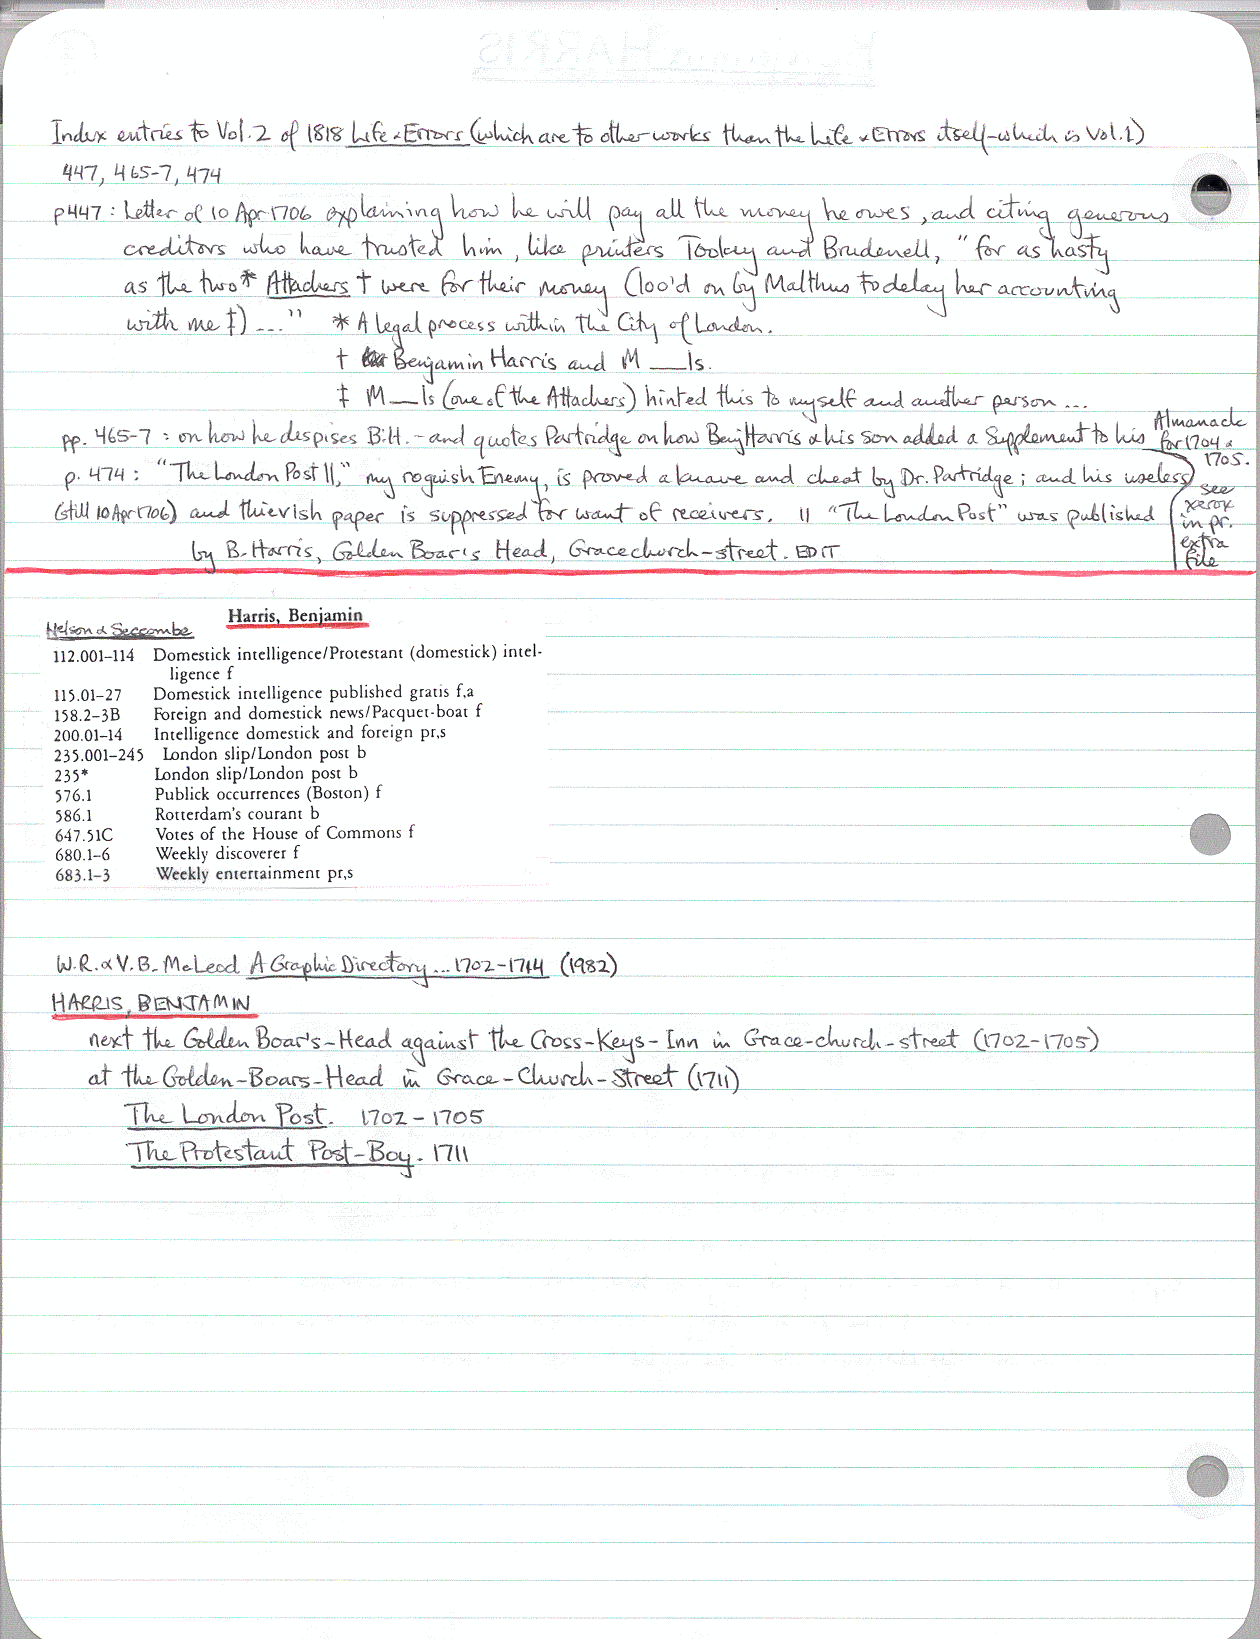 Index entries to Vol. 2 of 1818 Life & Errors (which are to other works than the Life & Errors itself - which is Vol. 1)
447, 465-7, 474
p447 : Letter of 10 Apr 1706 explaining how he will pay all the money he owes, and citing generous
creditors who have trusted him, like printers Tookey and Brudenell, "for as hasty
as the two* Attachers † were for their money (loo'd on by Malthus to delay her accounting
with me ‡) ..." * A legal process within the City of London.
† Benjamin Harris and M __ls.
‡ M__ls (one of the Attachers) hinted this to myself and another person ...
pp. 465-7 : on how he despises B.H. - and quotes Partridge on how Benj Harris & his son added a Supplement to his Almanack for 1704 & 1705.
p. 474 : "The London Post ||," my roguish Enemy, is proved a knave and cheat by Dr. Partridge; and his useless
(still 10 Apr 1706) and thievish paper is suppressed for want of receivers. || "The London Post" was published
by B. Harris, Golden Boar's Head, Gracechurch-street. EDIT
see
xerox
in pr.
extra
file
Harris, Benjamin
Nelson & Seccombe
112.001–114 Domestick intelligence/Protestant (domestick) intel-
ligence f
115.01–27 Domestick intelligence published gratis f,a
158.2–3B Foreign and domestick news/Pacquet-boat f
200.01–14 Intelligence domestick and foreign pr,s
235.001–245 London slip/London post b
235* London slip/London post b
576.1 Publick occurrences (Boston) f
586.1 Rotterdam's courant b
647.51C Votes of the House of Commons f
680.1–6 Weekly discoverer f
683.1–3 Weekly entertainment pr,s
W.R. & V.B. McLeod A Graphic Directory ... 1702-1714 (1982)
HARRIS, BENJAMIN
next the Golden Boar's-Head against the Cross-Keys-Inn in Grace-church-street (1702-1705)
at the Golden-Boars-Head in Grace-Church-Street (1711)
The London Post. 1702-1705
The Protestant Post-Boy. 1711